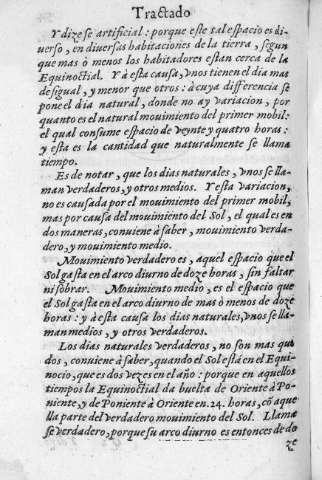 Tractado
Y dize se artificial: porque este tal espacio es di-
uerso, en diuersas habitaciones de la tierra, segun
que mas ò menos los habitadores estan cerca de la
Equinoctial. Y à esta causa, vnos tienen el dia mas
desigual, y menor que otros: à cuya differencia se
pone el dia natural, donde no ay variacion, por
quanto es el natural mouimiento del primer mobil:
el qual consume espacio de veynte y quatro horas:
y esta es la cantidad que naturalmente se llama
tiempo.
Es de notar, que los dias naturales, vnos se lla-
man verdaderos, y otros medios. Y esta variacion,
no es causada por el mouimiento del primer mobil,
mas por causa del mouimiento del Sol, el qual es en
dos maneras, conuiene à saber, mouimiento verda-
dero, y mouimiento medio.
Mouimiento verdadero es, aquel espacio que el
Sol gasta en el arco diurno de doze horas, sin faltar
ni sobrar. Mouimiento medio, es el espacio que
el Sol gasta en el arco diurno de mas ò menos de doze
horas: y à esta causa los dias naturales, vnos se lla-
man medios, y otros verdaderos.
Los dias naturales verdaderos, no son mas que
dos, conuiene à saber, quando el Sol està en el Equi-
nocio, que es dos vezes en el año: porque en aquellos
tiempos la Equinoctial da buelta de Oriente à Po-
niente, y de Poniente à Oriente en .24. horas, cõ aque
lla parte del verdadero mouimiento del Sol. Llama
se verdadero, porque su arco diurno es entonces de do
ze